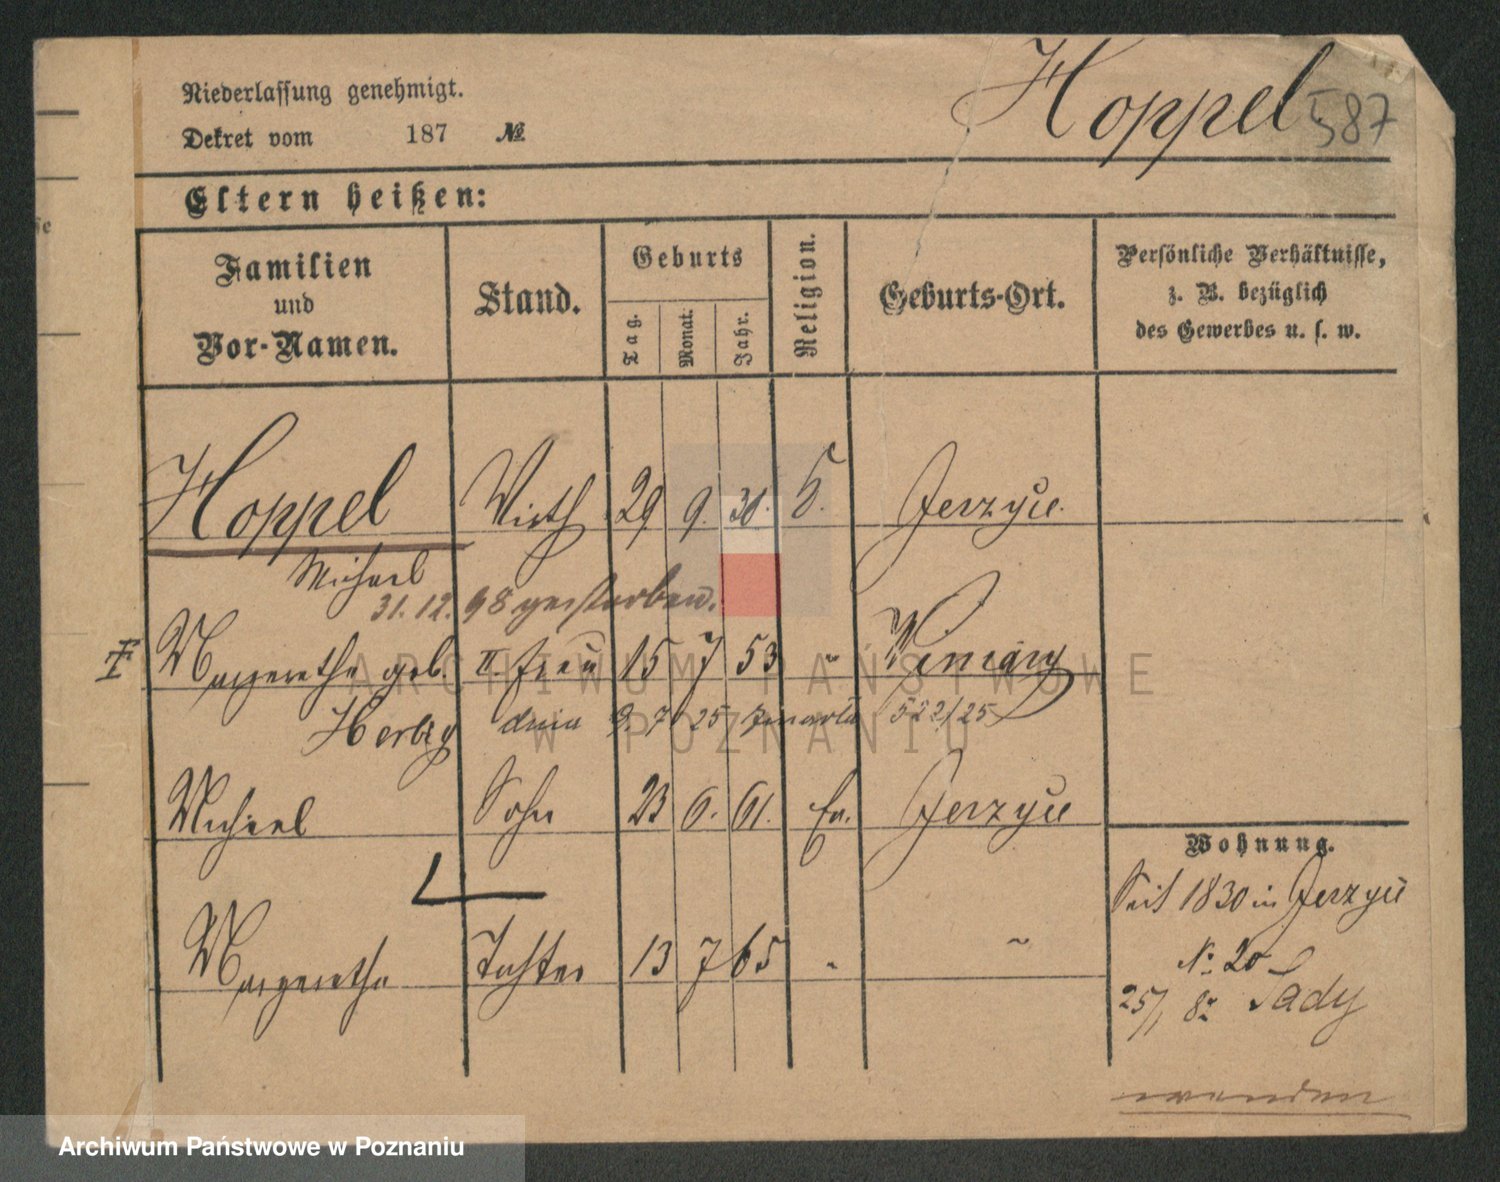 Niederlassung genehmigt.
Hoppel
587
Dekret vom 187 №
Eltern heißen:
Familien und Vor-Namen.
Stand.
Geburts
Tag. Monat. Jahr.
Religion.
Geburts-Ort.
Persönliche Verhältnisse,
z. B. bezüglich
des Gewerbes u. s. w.
Hoppel Wirth 29 9. 30. Jerzyce.
Michael
31. 12. 98 gestorben.
Margarethe geb. II. Frau 15 7 53 " Winiary
Herbig dnia 9. 7 25 zmarła 522/25
Michael Sohn 23 6. 61. Jerzyce
Margarethe Tochter 13 7 65 " "
Wohnung.
Seit 1830 in Jerzyce
No. 20
25/1 Sady
wenden
ARCHIWUM PAŃSTWOWE
W POZNANIU
Archiwum Państwowe w Poznaniu